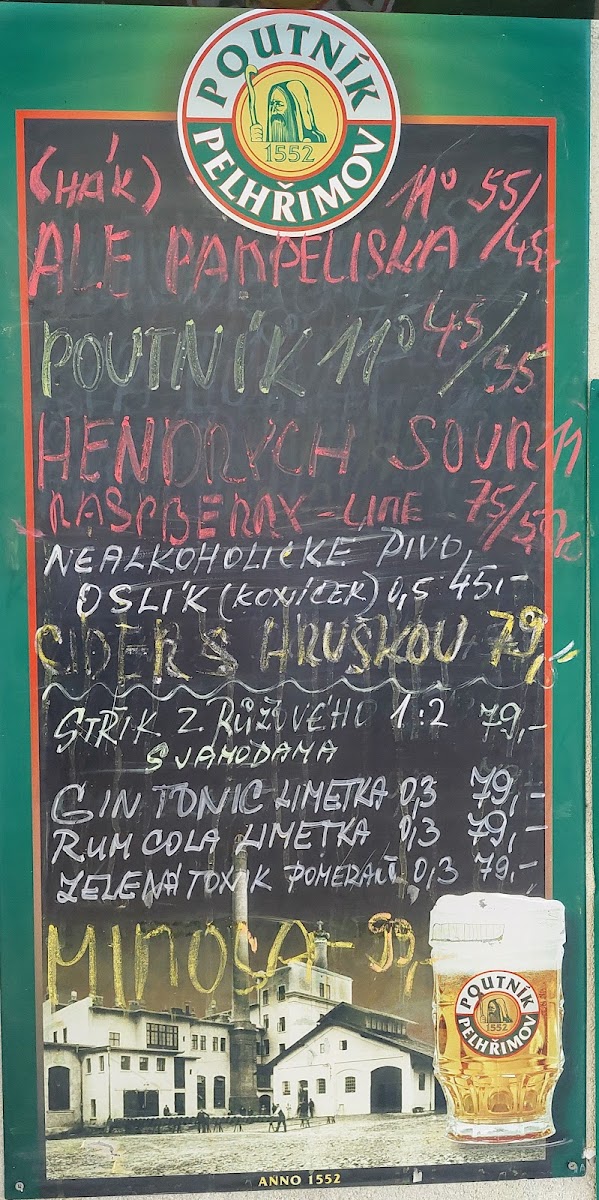 POUTNÍK
1552
PELHŘIMOV
(HÁK) 11° 55/
ALE PAMPELISKA /45,-
POUTNÍK 11° 45/
35
HENDRYCH SOUR 11
RASPBERRY-LIME 75/
NEALKOHOLICKÉ PIVO
OSLÍK (KONÍČEK) 0,5 45,-
CIDER S HRUŠKOU 79,-
STŘIK Z RŮŽOVÉHO 1:2 79,-
S JAHODAMA
GIN TONIC LIMETKA 0,3 79,-
RUM COLA LIMETKA 0,3 79,-
ZELENÁ TONIK POMERANČ 0,3 79,-
MIMOSA - 99,-
POUTNÍK
1552
PELHŘIMOV
ANNO 1552